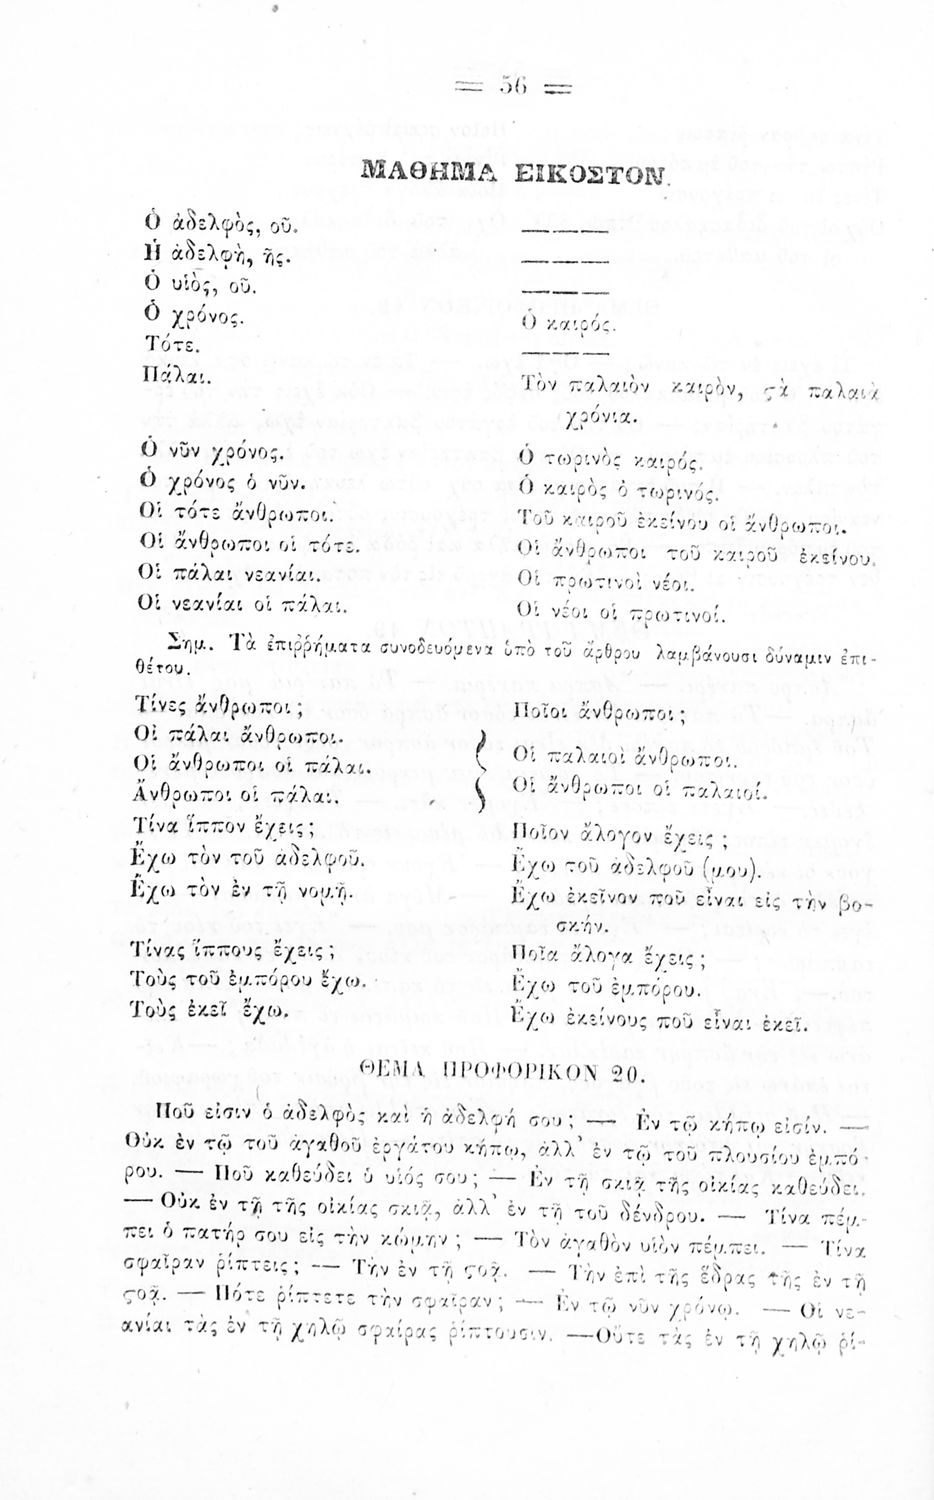 = 56 =
ΜΑΘΗΜΑ ΕΙΚΟΣΤΟΝ.
Ὁ ἀδελφὸς, οῦ. ———
Ἡ ἀδελφὴ, ῆς. ———
Ὁ υἱὸς, οῦ. ———
Ὁ χρόνος. Ὁ καιρός.
Τότε. ———
Πάλαι. Τὸν παλαιὸν καιρὸν, ςὰ παλαιὰ
χρόνια.
Ὁ νῦν χρόνος. Ὁ τωρινὸς καιρός.
Ὁ χρόνος ὁ νῦν. Ὁ καιρὸς ὁ τωρινός.
Οἱ τότε ἄνθρωποι. Τοῦ καιροῦ ἐκείνου οἱ ἄνθρωποι.
Οἱ ἄνθρωποι οἱ τότε. Οἱ ἄνθρωποι τοῦ καιροῦ ἐκείνου.
Οἱ πάλαι νεανίαι. Οἱ πρωτινοὶ νέοι.
Οἱ νεανίαι οἱ πάλαι. Οἱ νέοι οἱ πρωτινοί.
Σημ. Τὰ ἐπιῤῥήματα συνοδευόμενα ὑπὸ τοῦ ἄρθρου λαμβάνουσι δύναμιν ἐπι-
θέτου.
Τίνες ἄνθρωποι; Ποῖοι ἄνθρωποι;
Οἱ πάλαι ἄνθρωποι.
Οἱ ἄνθρωποι οἱ πάλαι. Οἱ παλαιοὶ ἄνθρωποι.
Ἄνθρωποι οἱ πάλαι. Οἱ ἄνθρωποι οἱ παλαιοί.
Τίνα ἵππον ἔχεις; Ποῖον ἄλογον ἔχεις;
Ἔχω τὸν τοῦ ἀδελφοῦ. Ἔχω τοῦ ἀδελφοῦ (μου).
Ἔχω τὸν ἐν τῇ νομῇ. Ἔχω ἐκεῖνον ποῦ εἶναι εἰς τὴν βο-
σκήν.
Τίνας ἵππους ἔχεις; Ποῖα ἄλογα ἔχεις;
Τοὺς τοῦ ἐμπόρου ἔχω. Ἔχω τοῦ ἐμπόρου.
Τοὺς ἐκεῖ ἔχω. Ἔχω ἐκείνους ποῦ εἶναι ἐκεῖ.
ΘΕΜΑ ΠΡΟΦΟΡΙΚΟΝ 20.
Ποῦ εἰσιν ὁ ἀδελφὸς καὶ ἡ ἀδελφή σου; — Ἐν τῷ κήπῳ εἰσίν. —
Οὐκ ἐν τῷ τοῦ ἀγαθοῦ ἐργάτου κήπῳ, ἀλλ' ἐν τῷ τοῦ πλουσίου ἐμπό-
ρου. — Ποῦ καθεύδει ὁ υἱός σου; — Ἐν τῇ σκιᾷ τῆς οἰκίας καθεύδει.
— Οὐκ ἐν τῇ τῆς οἰκίας σκιᾷ, ἀλλ' ἐν τῇ τοῦ δένδρου. — Τίνα πέμ-
πει ὁ πατήρ σου εἰς τὴν κώμην; — Τὸν ἀγαθὸν υἱὸν πέμπει. — Τίνα
σφαῖραν ῥίπτεις; — Τὴν ἐν τῇ ςοᾷ. — Τὴν ἐπὶ τῆς ἕδρας τῆς ἐν τῇ
ςοᾷ. — Πότε ῥίπτετε τὴν σφαῖραν; — Ἐν τῷ νῦν χρόνῳ. — Οἱ νε-
ανίαι τὰς ἐν τῇ χηλῷ σφαίρας ῥίπτουσιν. —Οὔτε τὰς ἐν τῇ χηλῷ ῥί-